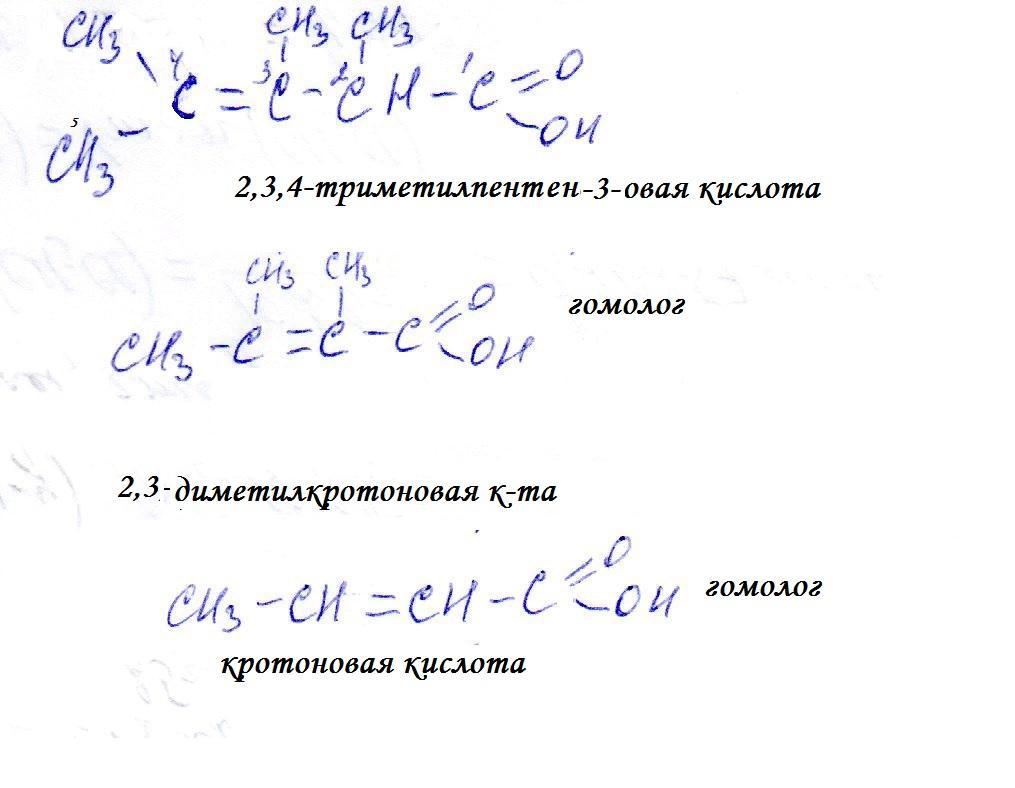 CH3 CH3 CH3
4 3 2 1
C = C - CH - C = O
5
CH3 - OH
2,3,4-триметилпентен-3-овая кислота
CH3 CH3
CH3 - C = C - C = O
- OH
гомолог
2,3-диметилкротоновая к-та
CH3 - CH = CH - C = O
- OH
гомолог
кротоновая кислота